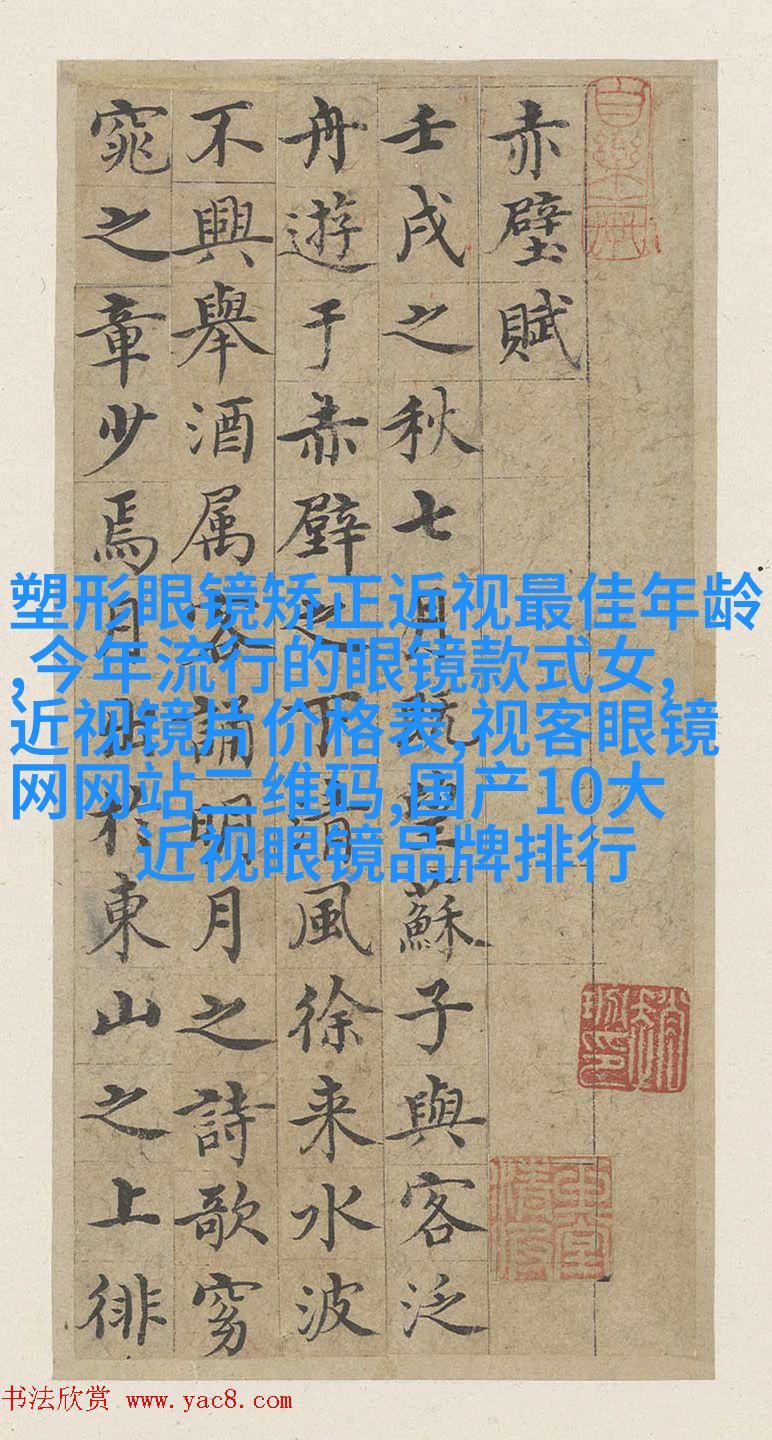 赤壁賦
壬戌之秋七月既望蘇子與客泛
舟遊于赤壁之下清風徐来水波
不興舉酒属客誦明月之詩歌窈
窕之章少焉月出於東山之上徘
塑形眼镜矫正近视最佳年龄
,今年流行的眼镜款式女,
近视镜片价格表,视客眼镜
网网站二维码,国产10大
近视眼镜品牌排行
书法欣赏 www.yac8.com